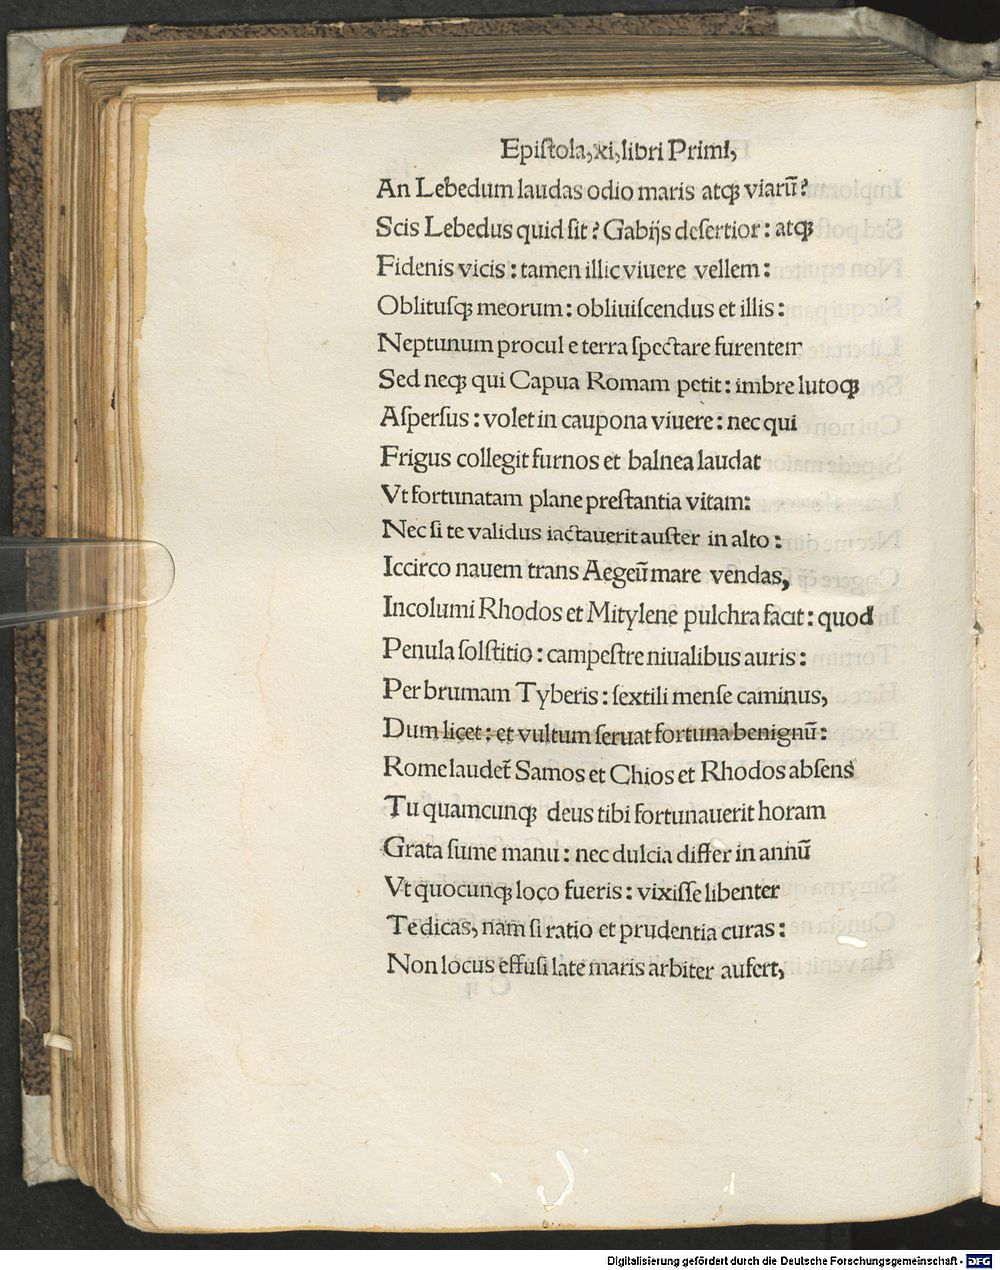 Epiſtola,xi,libri Primi,
An Lebedum laudas odio maris atqꝫ viarū?
Scis Lebedus quid ſit? Gabijs deſertior: atqꝫ
Fidenis vicis: tamen illic viuere vellem:
Oblituſqꝫ meorum: obliuiſcendus et illis:
Neptunum procul e terra ſpectare furentem
Sed neqꝫ qui Capua Romam petit: imbre lutoqꝫ
Aſperſus: volet in caupona viuere: nec qui
Frigus collegit furnos et balnea laudat
Vt fortunatam plane preſtantia vitam:
Nec ſi te validus iactauerit auſter in alto:
Iccirco nauem trans Aegeū mare vendas,
Incolumi Rhodos et Mitylene pulchra facit: quod
Penula ſolſtitio: campeſtre niualibus auris:
Per brumam Tyberis: ſextili menſe caminus,
Dum licet: et vultum ſeruat fortuna benignū:
Rome laudet̄ Samos et Chios et Rhodos abſens
Tu quamcunqꝫ deus tibi fortunauerit horam
Grata ſume manu: nec dulcia differ in annū
Vt quocunqꝫ loco fueris: vixiſſe libenter
Te dicas, nam ſi ratio et prudentia curas:
Non locus effuſi late maris arbiter aufert,
Digitalisierung gefördert durch die Deutsche Forschungsgemeinschaft - DFG